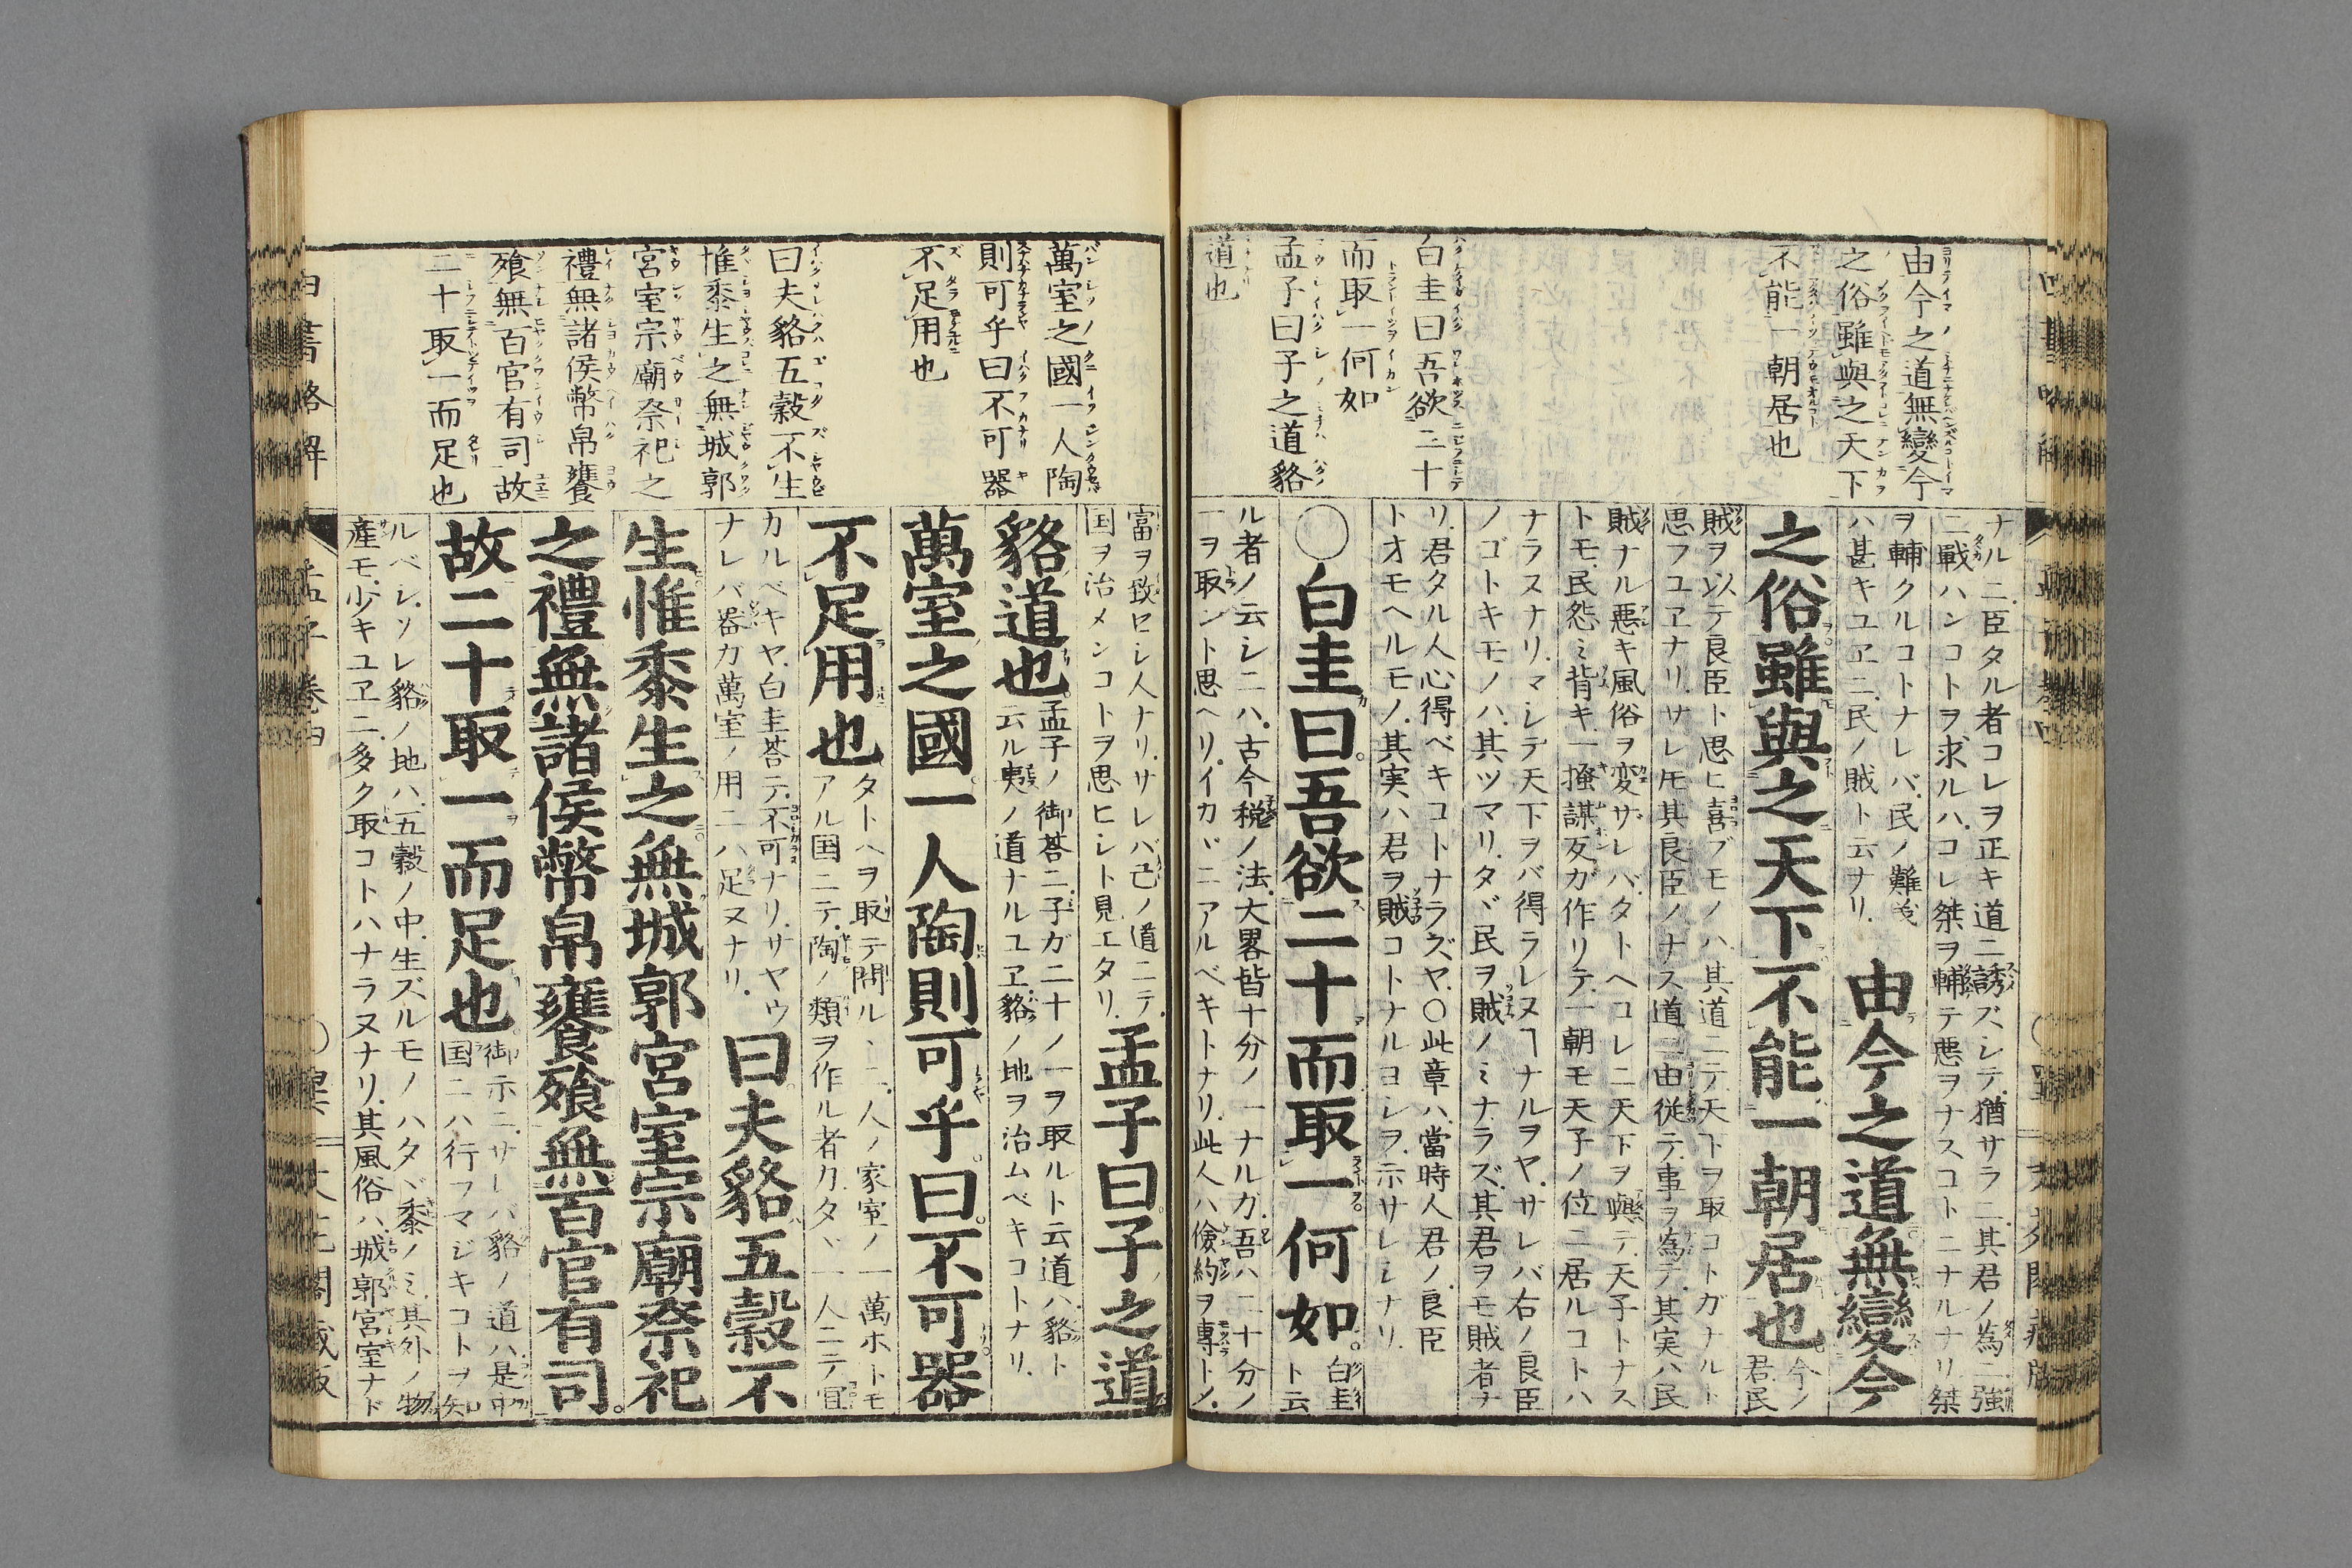 由今之道無變今
之俗雖與之天下
不能一朝居也
白圭曰吾欲二十
而取一何如
孟子曰子之道貉
道也
ナルニ臣タル者コレヲ正キ道ニ誘ズシテ猶サラニ其君ノ為ニ強
ニ戰ハンコトヲ求ルハコレ桀ヲ輔テ悪ヲナスコトニナルナリ桀
ヲ輔クルコトナレバ民ノ難義
ハ甚キユヱニ民ノ賊ト云ナリ
由今之道無變今
之俗雖與之天下不能一朝居也
今ノ
君民
賊ヲ以テ良臣ト思ヒ喜ブモノハ其道ニテ天下ヲ取コトガナルト
思フユヱナリサレ𪜈其良臣ノナス道ニ由従テ事ヲ為テ其実ハ民
賊ナル悪キ風俗ヲ変サレバタトヘコレニ天下ヲ與テ天子トナス
トモ民怨ミ背キ一揆謀反ガ作リテ一朝モ天子ノ位ニ居ルコトハ
ナラヌナリマシテ天下ヲバ得ラレヌヿナルヲヤサレバ右ノ良臣
ノゴトキモノハ其ツマリタヾ民ヲ賊ノミナラズ其君ヲモ賊者ナ
リ君タル人心得ベキコトナラズヤ〇此章ハ當時人君ノ良臣
トオモヘルモノ其実ハ君ヲ賊コトナルヨシヲ示サレシナリ
〇白圭曰吾欲二十而取一何如
白圭
ト云
ル者ノ云シニハ古今税ノ法大畧皆十分ノ一ナルガ吾ハ二十分ノ
一ヲ取ント思ヘリイカヾニアルベキトナリ此人ハ儉約ヲ專トシ
萬室之國一人陶
則可乎曰不可器
不足用也
曰夫貉五穀不生
惟黍生之無城郭
宮室宗廟祭祀之
禮無諸侯幣帛饔
飧無百官有司故
二十取一而足也
富ヲ致セシ人ナリサレバ己ノ道ニテ
国ヲ治メンコトヲ思ヒシト見エタリ
孟子曰子之道
貉道也
孟子ノ御荅ニ子ガ二十ノ一ヲ取ルト云道ハ貉ト
云ル夷ノ道ナルユヱ貉ノ地ヲ治ムベキコトナリ
萬室之國一人陶則可乎曰不可器
不足用也
タトヘヲ取テ問ルヽニ人ノ家室ノ一萬ホトモ
アル国ニテ陶ノ類ヲ作ル者カタヾ一人ニテ宜
カルベキヤ白圭荅テ不可ナリサヤウ
ナレバ器カ萬室ノ用ニハ足ヌナリ
曰夫貉五穀不
生惟黍生之無城郭宮室宗廟祭祀
之禮無諸侯幣帛饔飧無百官有司
故二十取一而足也
御示ニサレバ貉ノ道ハ是中
国ニハ行フマジキコトヲ知
ルベレソレ貉ノ地ハ五穀ノ中生ズルモノハタヾ黍ノミ其外ノ物
産モ少キユヱニ多ク取コトハナラヌナリ其風俗ハ城郭宮室ナド